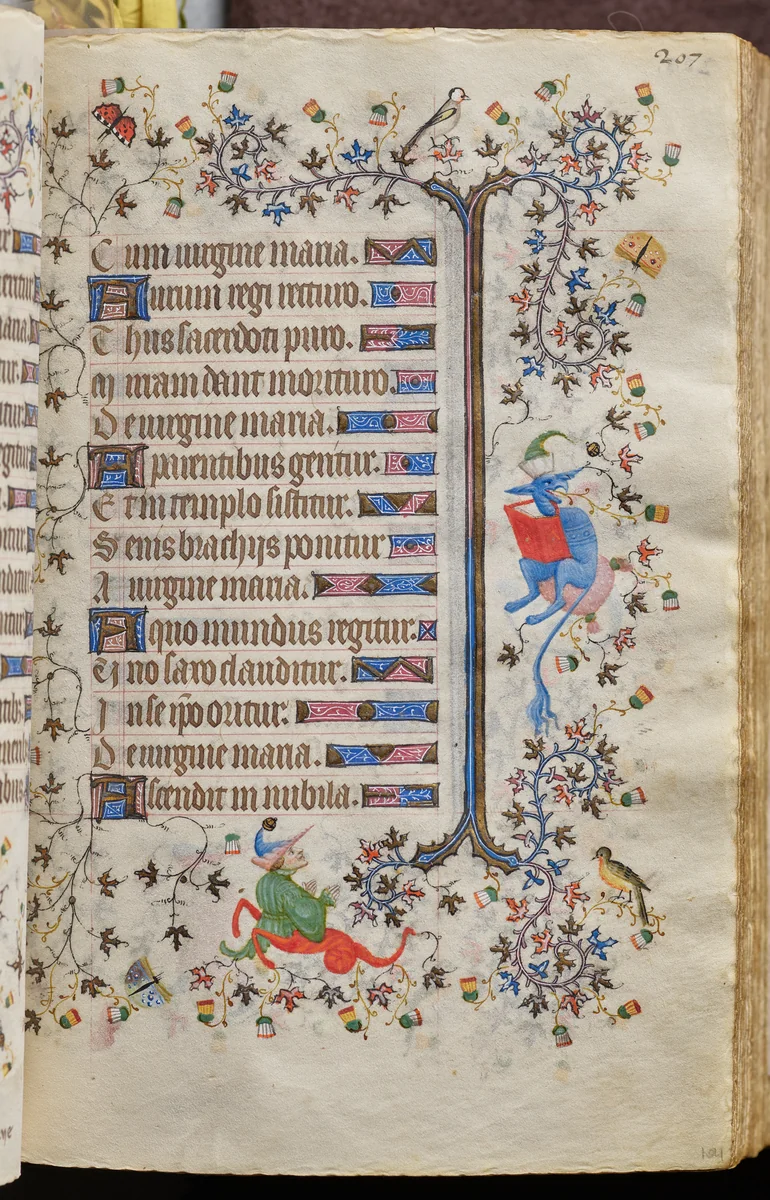 207
Cum uirgine maria.
Aurum regi recturo.
Thus sacerdoti puro.
Mirram dant morituro.
De uirgine maria.
A parentibus geritur.
Et in templo sistitur.
Senis brachijs ponitur
A uirgine maria.
A quo mundus regitur.
Uno saxo clauditur.
In se ip̄o oritur.
De uirgine maria.
Ascendit in nubila.